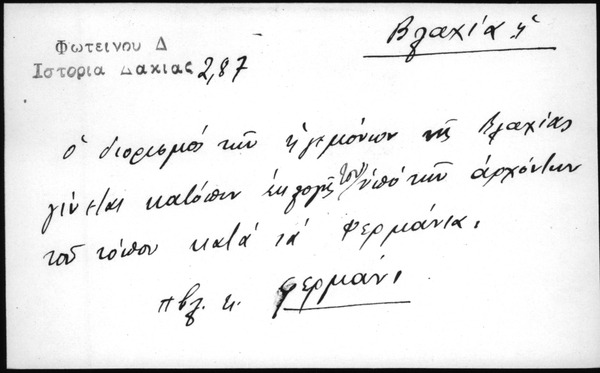 Φωτεινου Δ
Ιστορια Δακιας 2,87
Βλαχία ἡ
ὁ διορισμός τῶν ἡγεμόνων τῆς Βλαχίας
γίνεται κατόπιν ἐκλογῆς των ὑπό τῶν ἀρχόντων
τοῦ τόπου κατά τά φερμάνια.
πβλ. κ. φερμάνι